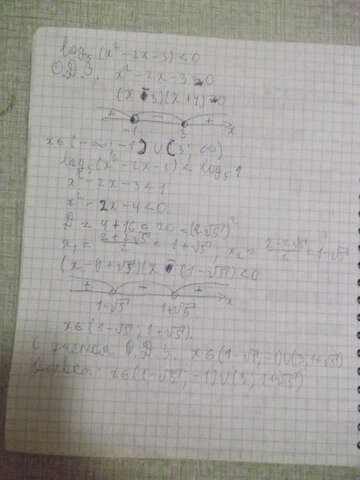 log₅(x²-2x-3)<0
О.Д.З. x²-2x-3>0
(x-3)(x+1)>0
+ - +
-1 3 x
x∈(-∞; -1)∪(3; ∞)
log₅(x²-2x-3)<log₅1
x²-2x-3<1
x²-2x-4<0
D = 4+16 = 20 = (2√5)²
x₁ = (2+2√5)/2 = 1+√5, x₂ = (2-2√5)/2 = 1-√5
(x-(1+√5))(x-(1-√5))<0
+ - +
1-√5 1+√5 x
x∈(1-√5; 1+√5).
С учетом О.Д.З. x∈(1-√5; -1)∪(3; 1+√5)
Ответ: x∈(1-√5; -1)∪(3; 1+√5)